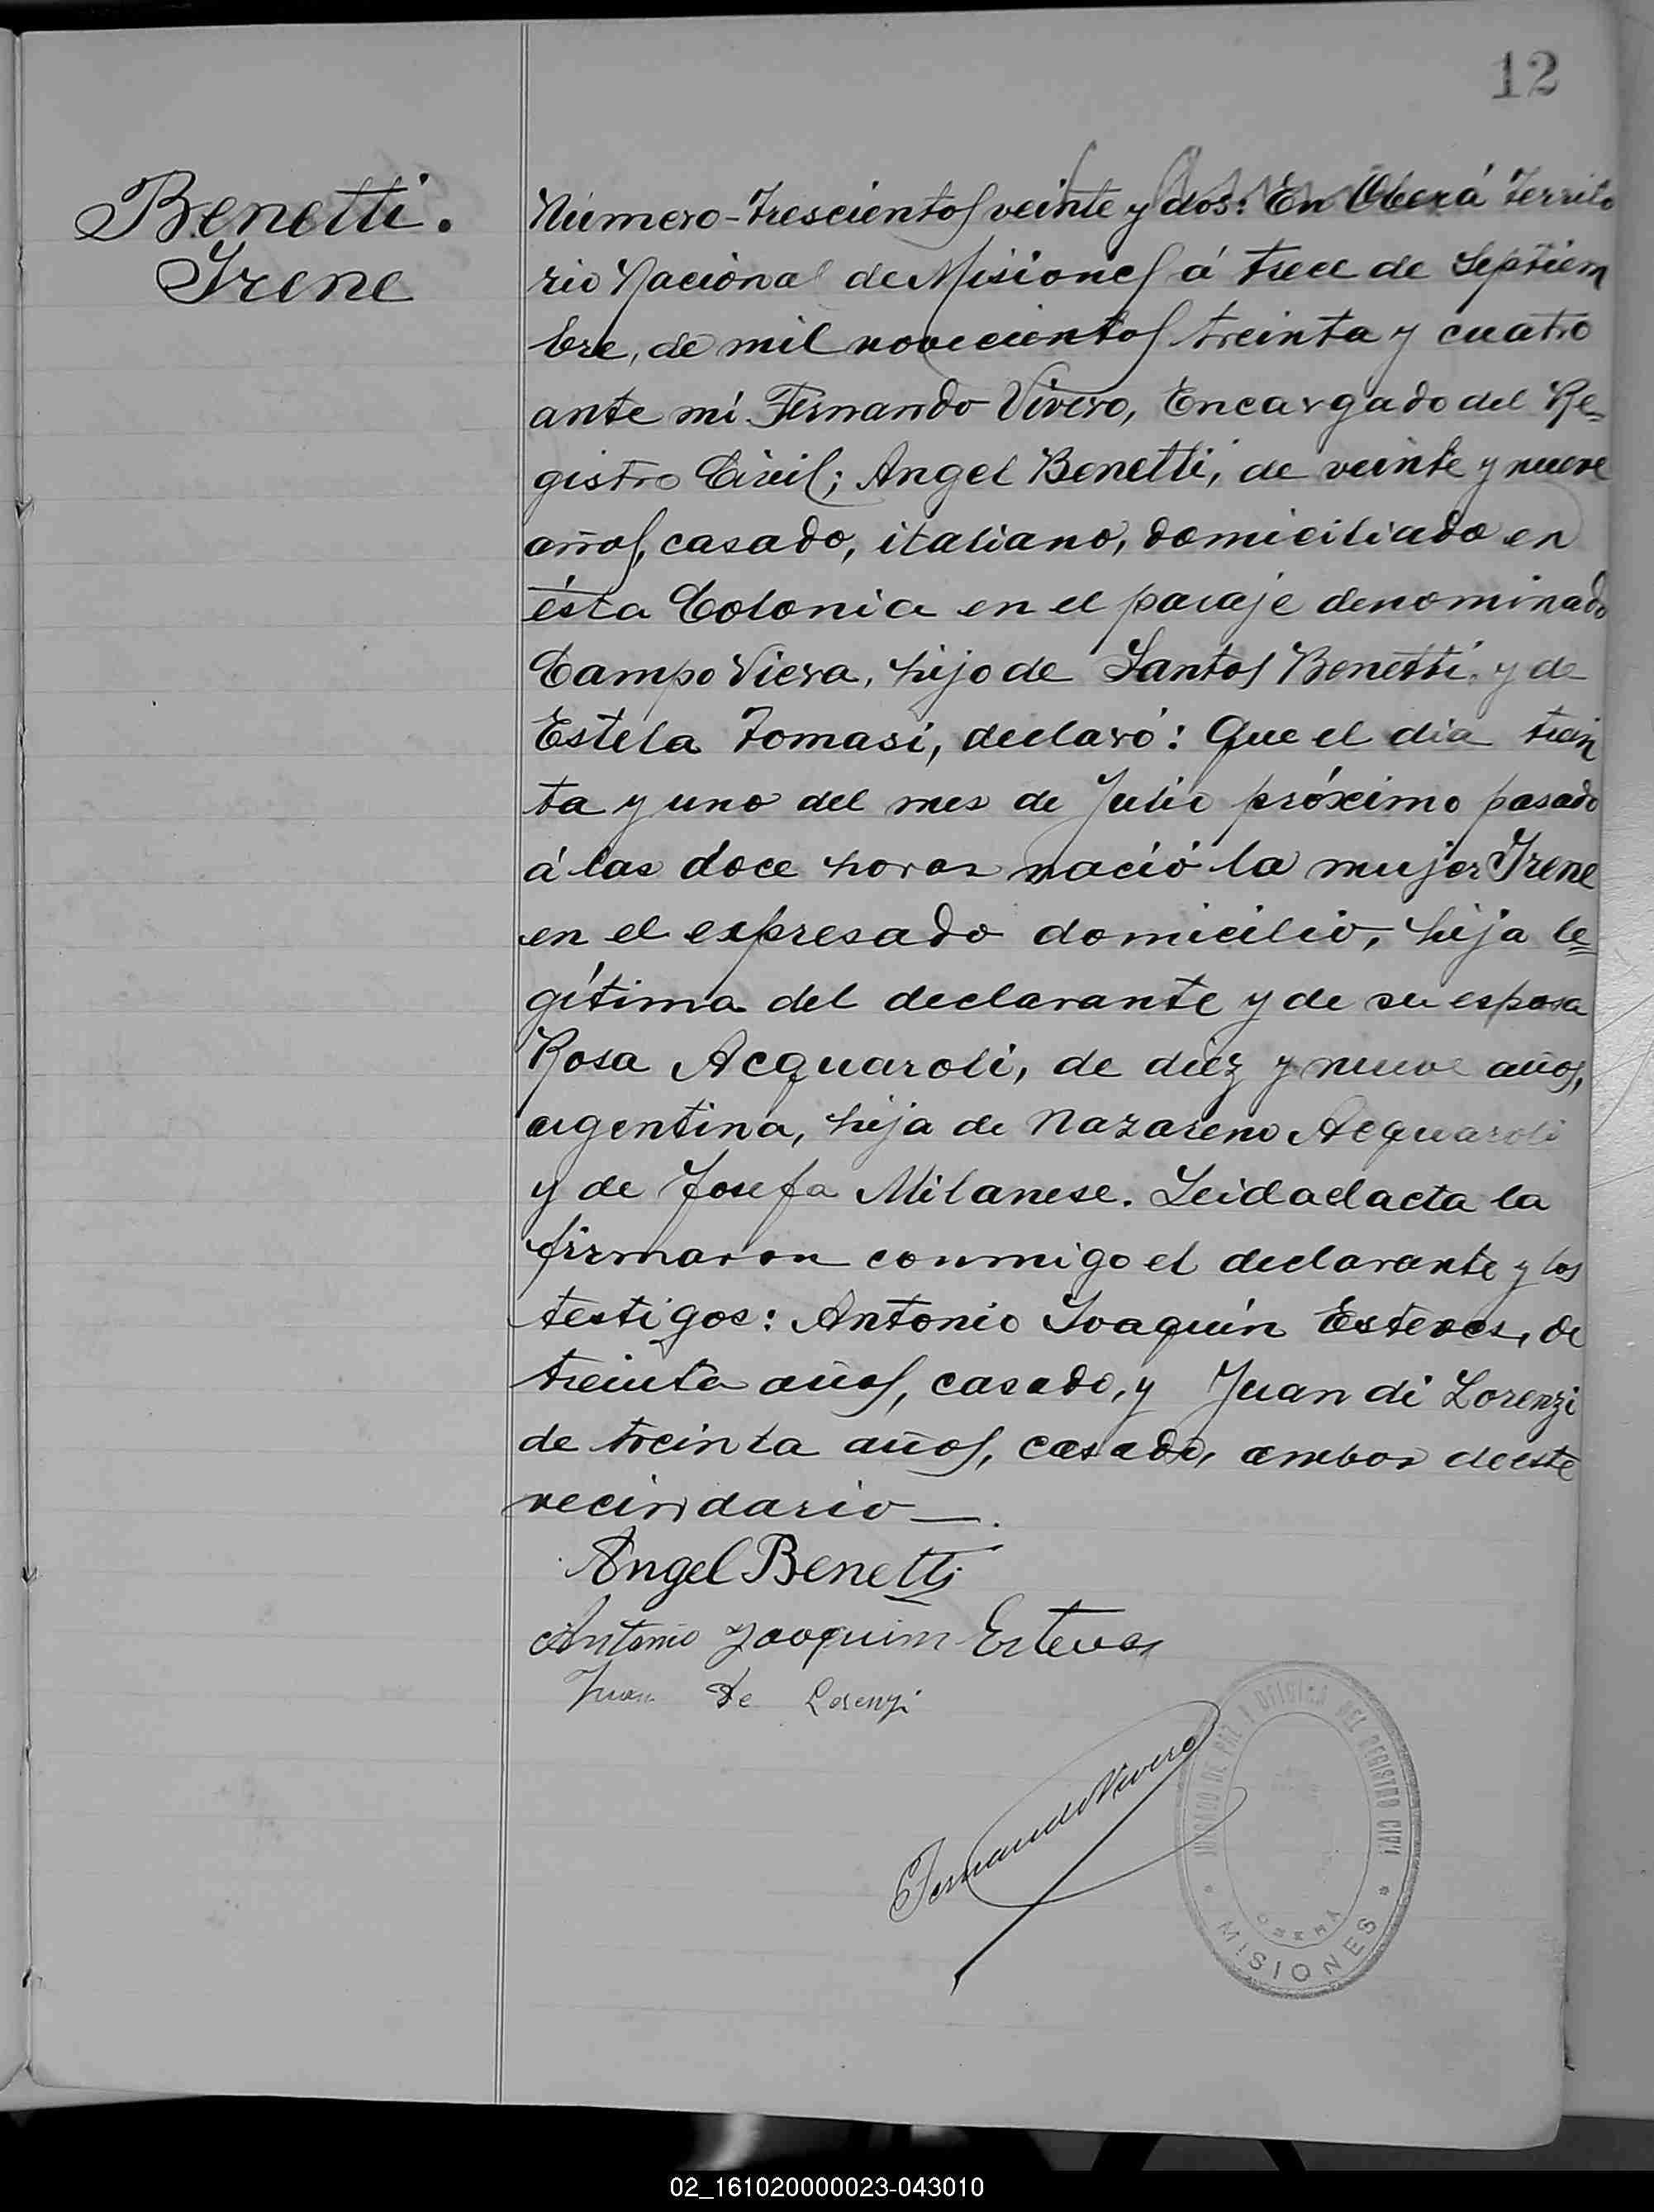 12
Benetti.
Irene
Número-Trescientos veinte y dos: En Oberá Territo
rio Nacional de Misiones á trece de Septiem
bre, de mil novecientos treinta y cuatro
ante mí Fernando Vivero, Encargado del Re=
gistro Civil; Angel Benetti, de veinte y nueve
años, casado, italiano, domiciliado en
ésta Colonia en el paraje denominado
Campo Viera, hijo de Santos Benetti y de
Estela Tomasi, declaró: Que el día trein
ta y uno del mes de Julio próximo pasado
á las doce horas nació la mujer Irene
en el expresado domicilio, hija le=
gítima del declarante y de su esposa
Rosa Acquaroli, de diez y nueve años,
argentina, hija de Nazareno Acquaroli
y de Josefa Milanese. Leida el acta la
firmaron conmigo el declarante y los
testigos: Antonio Joaquín Esteves, de
treinta años, casado, y Juan di Lorenzi
de treinta años, casado, ambos de este
vecindario—.
Angel Benetti
Antonio Joaquim Esteves
Juan De Lorenzi
Fernando Vivero
JUZGADO DE PAZ Y OFICINA DEL REGISTRO CIVIL
OBERÁ
* MISIONES *
02_161020000023-043010